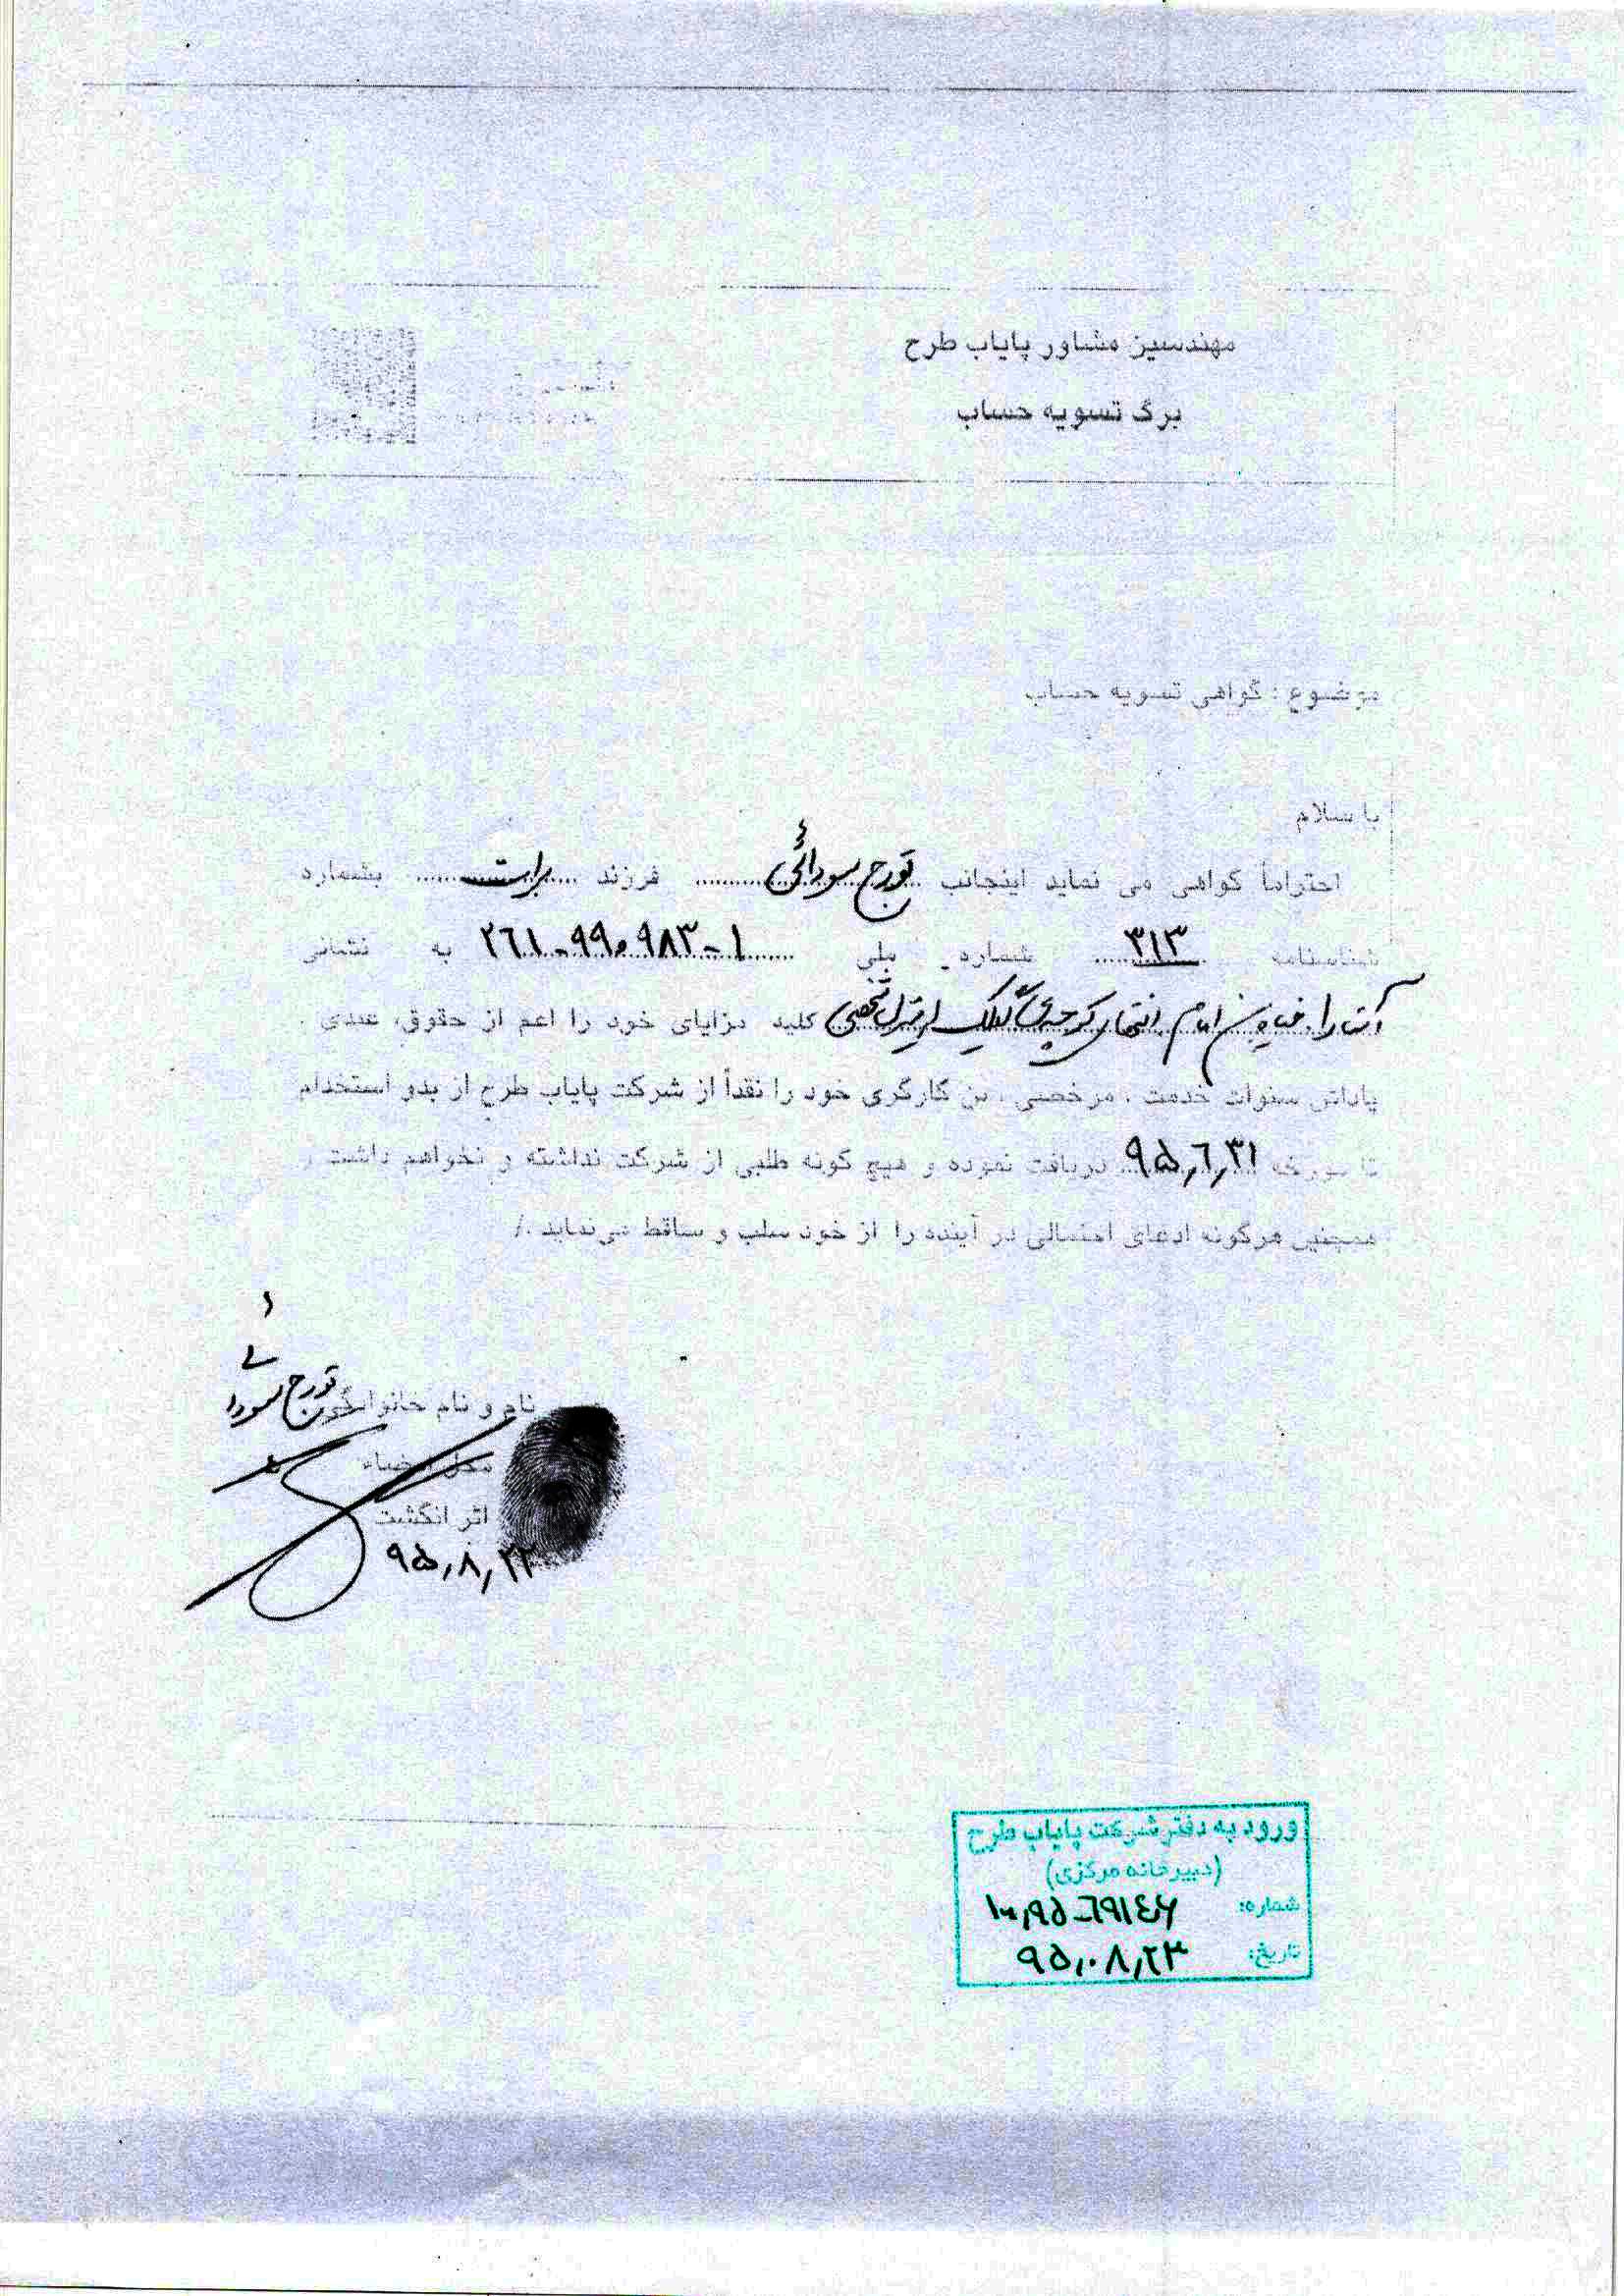 مهندسین مشاور پایاب طرح
برگ تسویه حساب
موضوع : گواهی تسویه حساب
با سلام
احتراماً گواهی می نماید اینجانب تورج سودائی فرزند براست بشماره
شناسنامه ۳۱۳ شماره ملی ۲۶۱-۹۹۰۹۸۳-۱ به نشانی
آستارا خیابان امام انتهای کوچه کلیه مزایای خود را اعم از حقوق، عیدی ،
پاداش سنوات خدمت ، مرخصی ، بن کارگری خود را نقداً از شرکت پایاب طرح از بدو استخدام
تا مورخه ۹۵/۶/۳۱ دریافت نموده و هیچ گونه طلبی از شرکت نداشته و نخواهم داشت و
همچنین هرگونه ادعای احتمالی در آینده را از خود سلب و ساقط می‌نماید ./
نام و نام خانوادگی تورج سودائی
محل امضاء
اثر انگشت
۹۵/۸/۲۳
ورود به دفتر شرکت پایاب طرح
(دبیرخانه مرکزی)
شماره: ۱۰۰/۹۵-۶۹۱۴۶
تاریخ: ۹۵/۰۸/۲۳